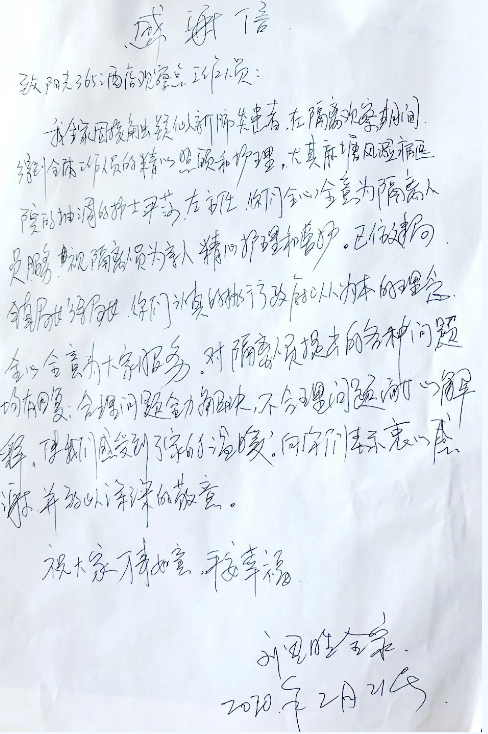 感谢信
致阳光365酒店观察点工作人员：
我全家因接触出疑似新肺炎患者，在隔离观察期间
得到全体工作人员的精心照顾和护理，尤其麻塘风湿病医
院的抽调的护士尹荡、左主任，你们全心全意为隔离人
员服务，视隔离人员为亲人，精心护理和照护。
你们认真的执行政府以人为本的理念
全心全意为大家服务，对隔离人员提出的各种问题
均有回复，合理问题全力解决，不合理问题耐心解
释，使我们感受到了家的温暖，向你们表示衷心感
谢，并致以深深的敬意。
祝大家万事如意，平安幸福。
全家
2020年2月21号